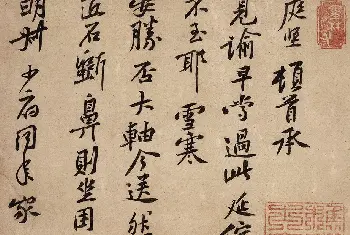 庭堅頓首承
見諭早嘗過此延佇
不至耶雪寒
安勝否大軸今送然
近石斵鼻則坐困
明叔少府同年家